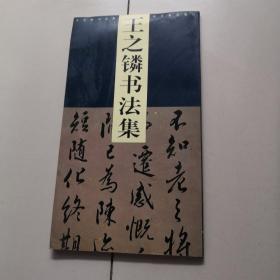 王之𬭸书法集
不知老之将
遷感慨
已為陳迹
短随化终期